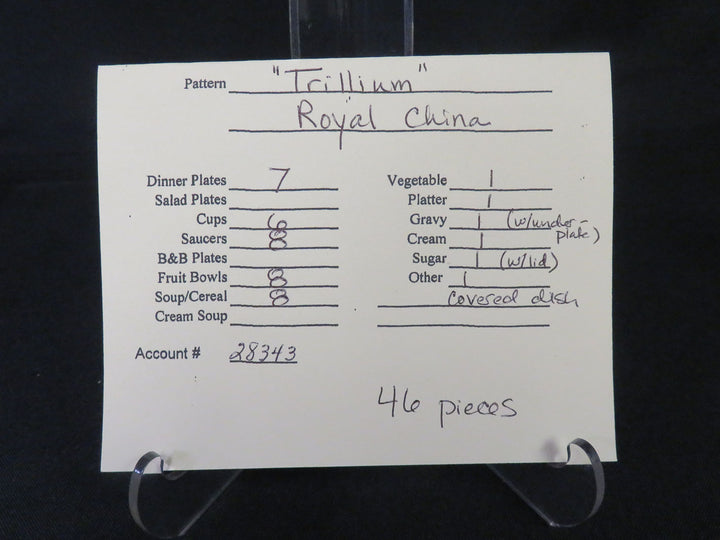 Pattern "Trillium"
Royal China
Dinner Plates 7
Salad Plates
Cups 6
Saucers 8
B&B Plates
Fruit Bowls 8
Soup/Cereal 8
Cream Soup
Vegetable 1
Platter 1
Gravy 1 (w/under-
plate)
Cream 1
Sugar 1 (w/lid)
Other 1
covered dish
Account # 28343
46 pieces